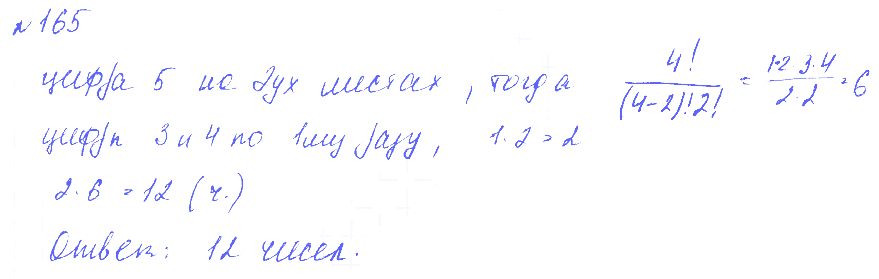 №165
цифра 5 на 2ух местах, тогда 4!/(4-2)!2! = 1·2·3·4/2·2 = 6
цифры 3 и 4 по 1му разу, 1·2=2
2·6=12 (ч.)
Ответ: 12 чисел.